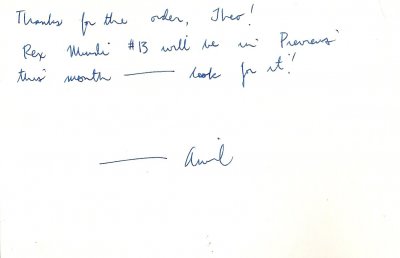 Thanks for the order, Theo!
Rex Mundi #13 will be in Previews
this month — look for it!
— Arvid